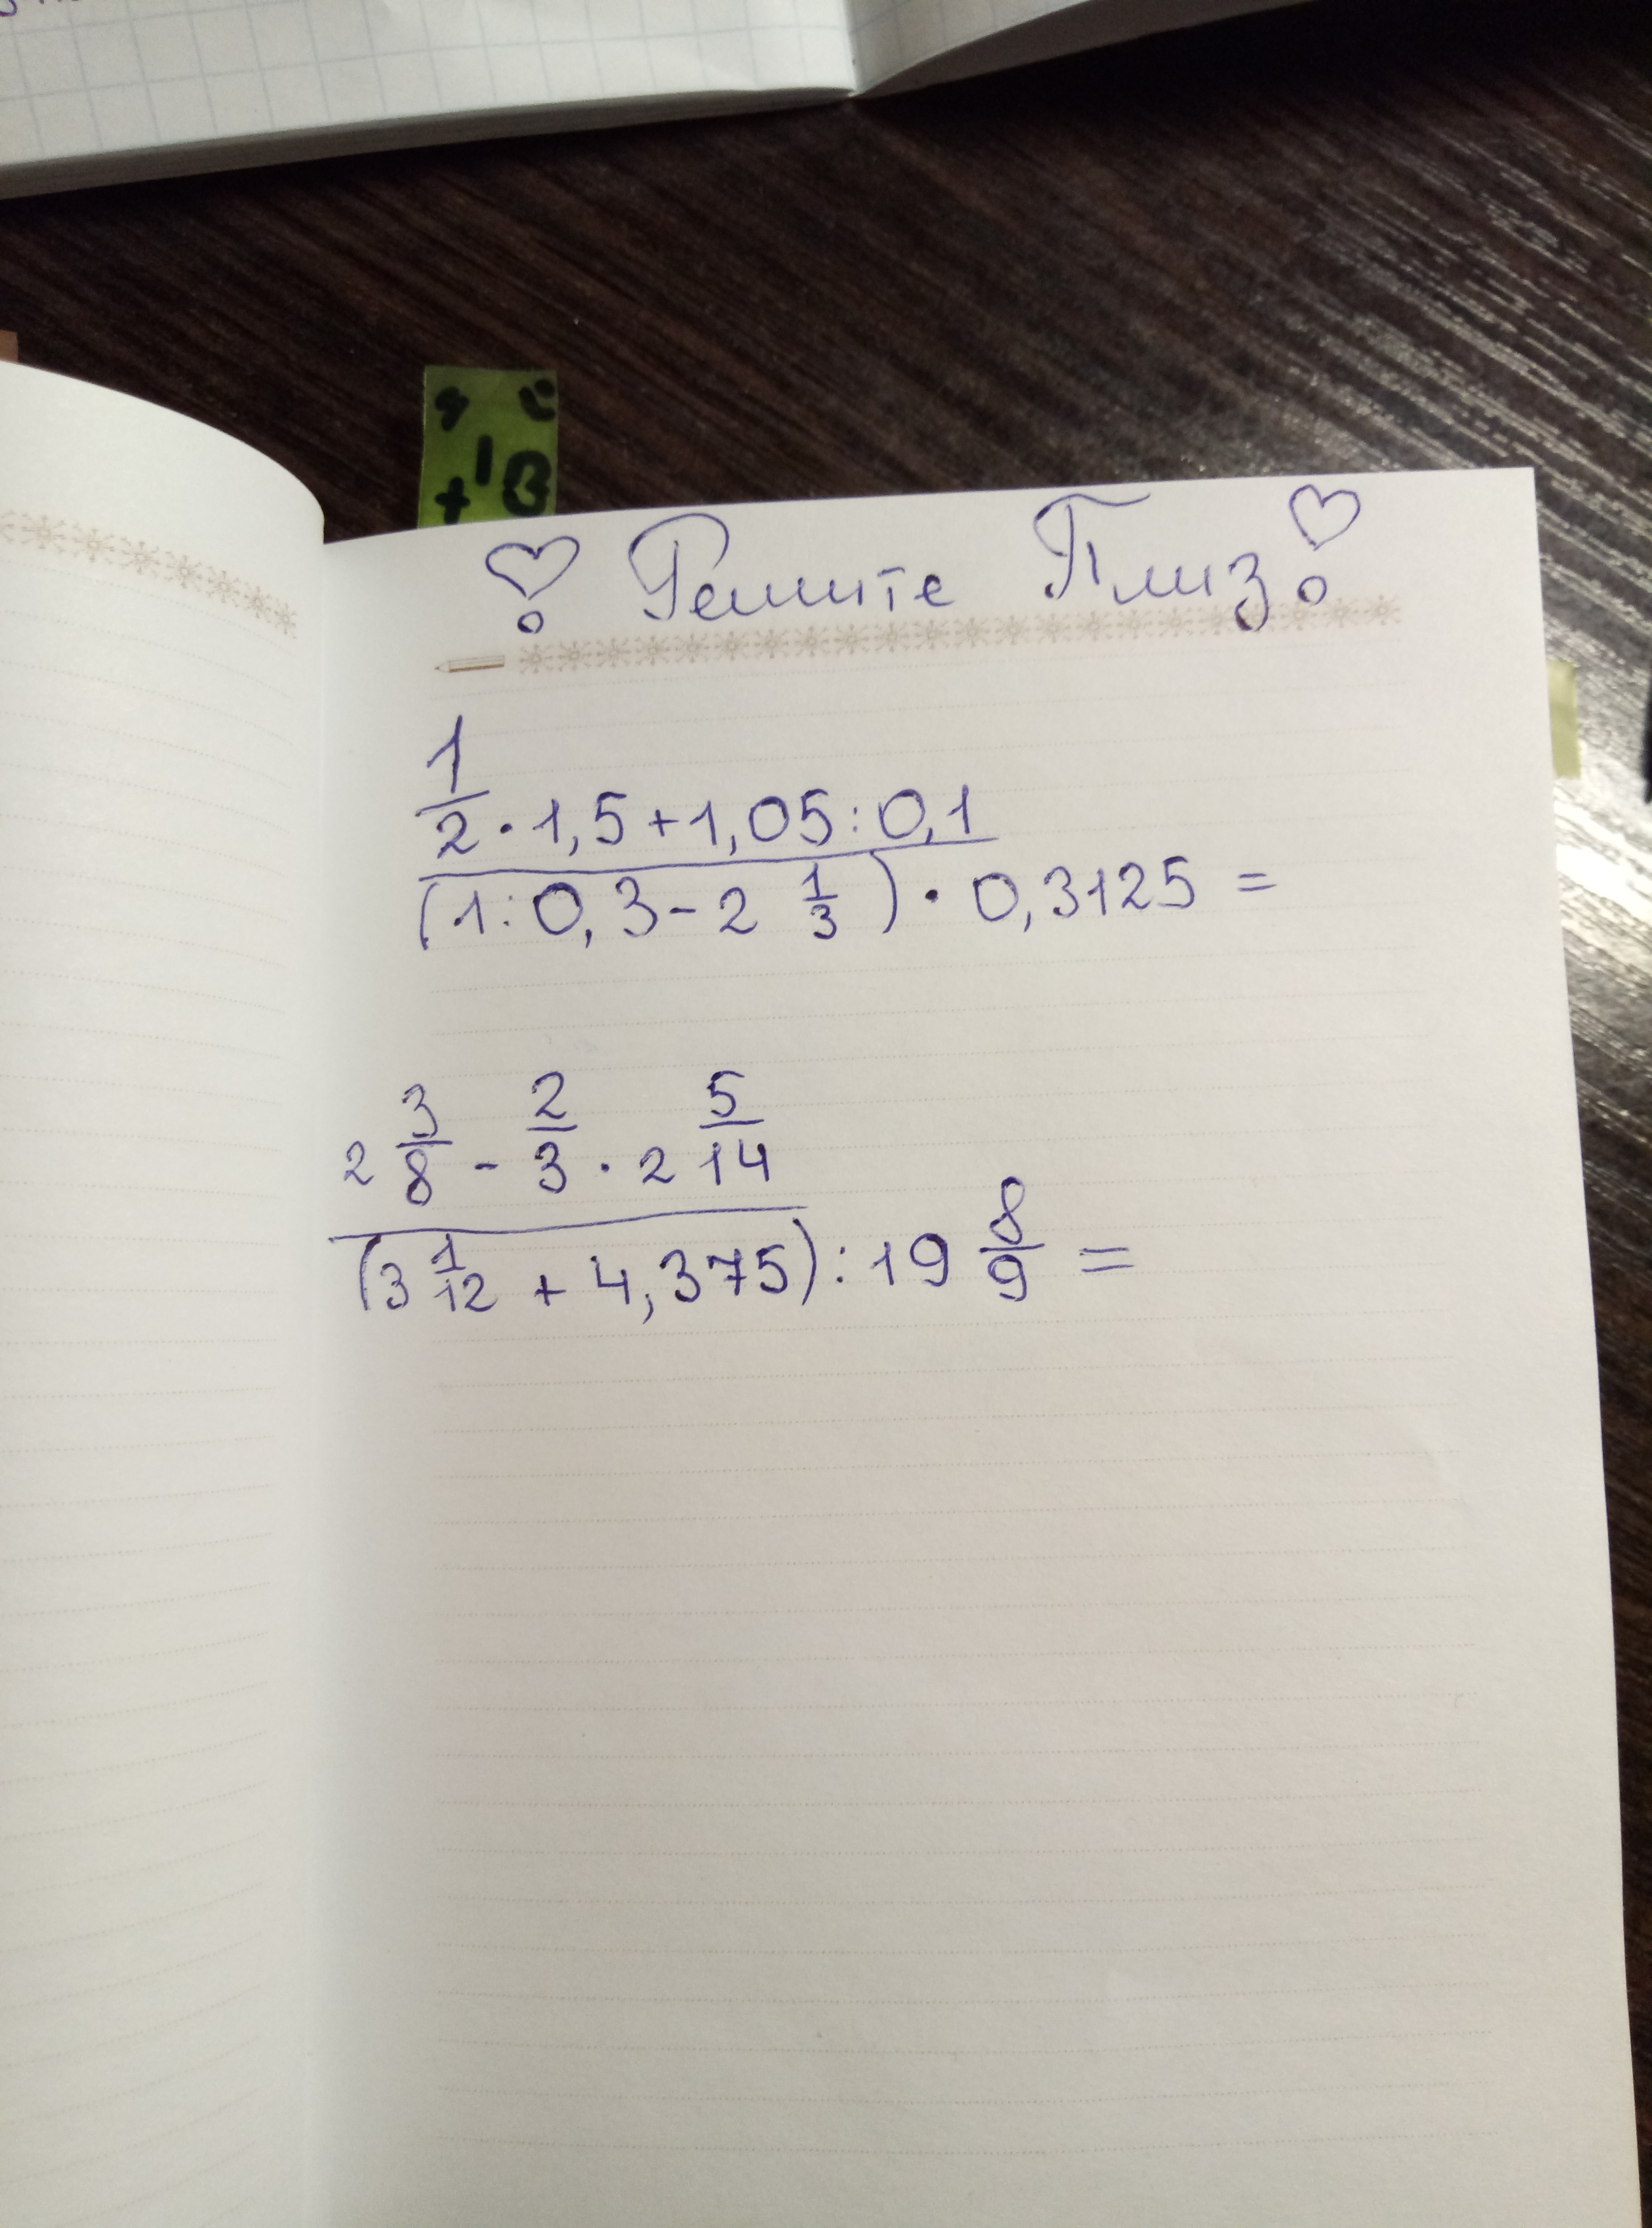 Решите Плиз
1/2 · 1,5 + 1,05 : 0,1
(1 : 0,3 - 2 1/3) · 0,3125 =
2 3/8 - 2/3 · 2 5/14
(3 1/12 + 4,375) : 19 8/9 =